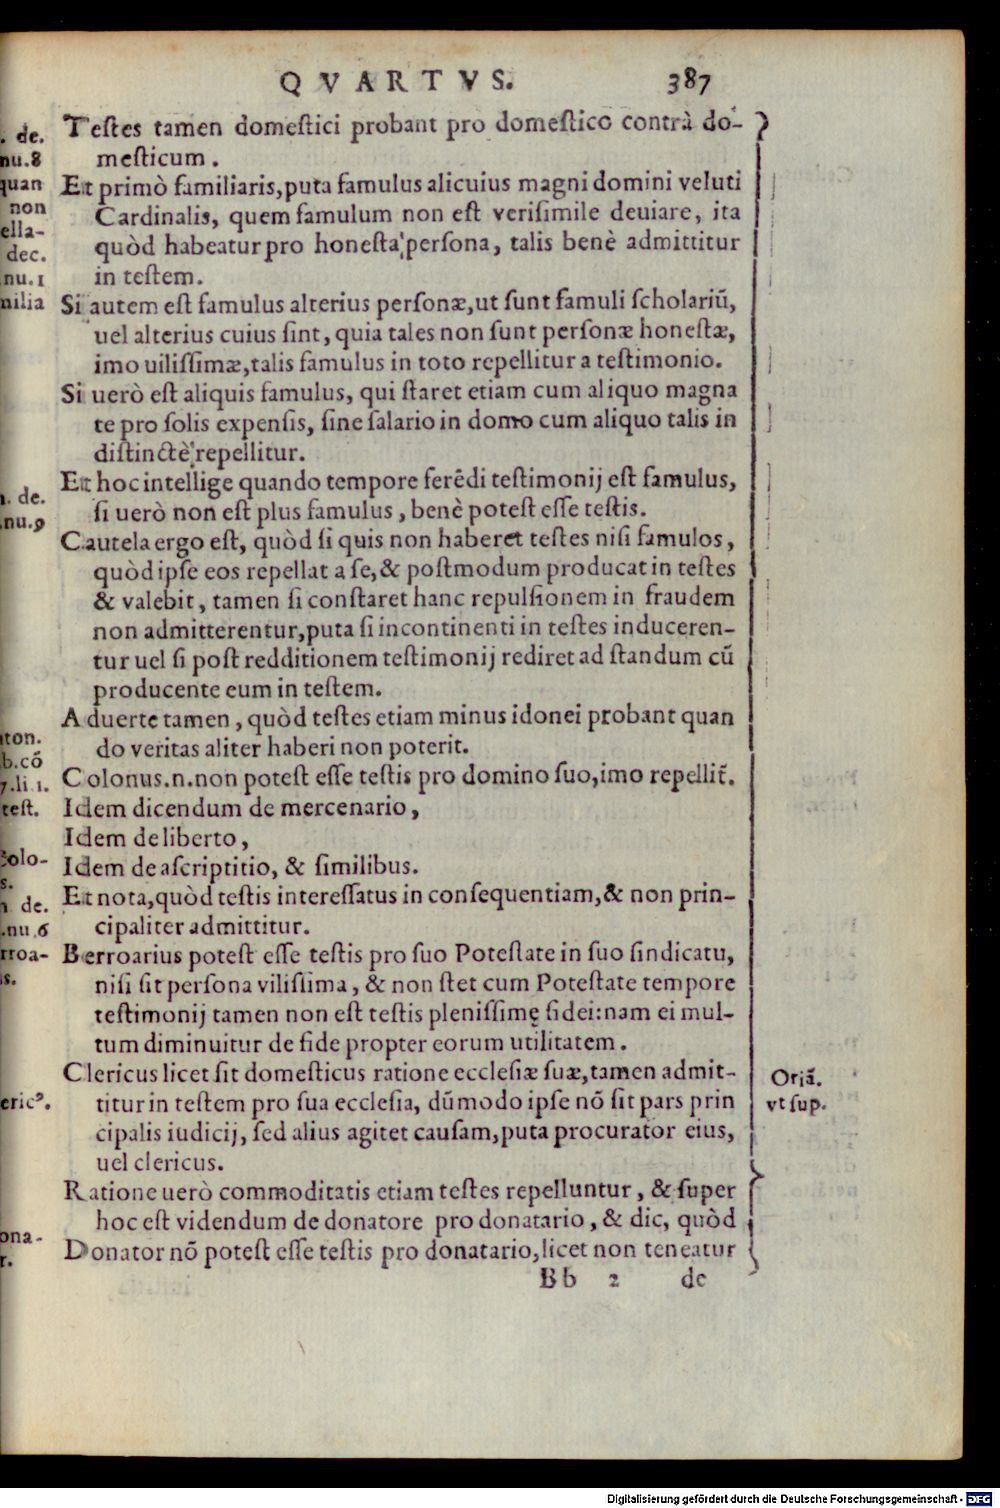 QVARTVS. 387
Teſtes tamen domeſtici probant pro domeſtico contrà do-
meſticum.
Et primò familiaris, puta famulus alicuius magni domini veluti
Cardinalis, quem famulum non eſt veriſimile deuiare, ita
quòd habeatur pro honeſta perſona, talis benè admittitur
in teſtem.
Si autem eſt famulus alterius perſonæ, ut ſunt famuli ſcholariũ,
uel alterius cuius ſint, quia tales non ſunt perſonæ honeſtæ,
imo uiliſſimæ, talis famulus in toto repellitur a teſtimonio.
Si uerò eſt aliquis famulus, qui ſtaret etiam cum aliquo magna
te pro ſolis expenſis, ſine ſalario in domo cum aliquo talis in
diſtinctè repellitur.
Et hoc intellige quando tempore ferẽdi teſtimonij eſt famulus,
ſi uerò non eſt plus famulus, benè poteſt eſſe teſtis.
Cautela ergo eſt, quòd ſi quis non haberet teſtes niſi famulos,
quòd ipſe eos repellat a ſe, & poſtmodum producat in teſtes
& valebit, tamen ſi conſtaret hanc repulſionem in fraudem
non admitterentur, puta ſi incontinenti in teſtes induceren-
tur uel ſi poſt redditionem teſtimonij rediret ad ſtandum cũ
producente eum in teſtem.
Aduerte tamen, quòd teſtes etiam minus idonei probant quan
do veritas aliter haberi non poterit.
Colonus.n.non poteſt eſſe teſtis pro domino ſuo, imo repellit̃.
Idem dicendum de mercenario,
Idem de liberto,
Idem de aſcriptitio, & ſimilibus.
Et nota, quòd teſtis intereſſatus in conſequentiam, & non prin-
cipaliter admittitur.
Berroarius poteſt eſſe teſtis pro ſuo Poteſtate in ſuo ſindicatu,
niſi ſit perſona viliſſima, & non ſtet cum Poteſtate tempore
teſtimonij tamen non eſt teſtis pleniſſimę fidei: nam ei mul-
tum diminuitur de fide propter eorum utilitatem.
Clericus licet ſit domeſticus ratione eccleſiæ ſuæ, tamen admit-
titur in teſtem pro ſua eccleſia, dũmodo ipſe nõ ſit pars prin
cipalis iudicij, ſed alius agitet cauſam, puta procurator eius,
uel clericus.
Ratione uerò commoditatis etiam teſtes repelluntur, & ſuper
hoc eſt videndum de donatore pro donatario, & dic, quòd
Donator nõ poteſt eſſe teſtis pro donatario, licet non teneatur
Bb 2 de
Oriã.
vt ſup.
. de.
nu.8
quan
non
ella-
dec.
nu.1
milia
. de.
nu.9
ton.
b.cõ
7.li.1.
teſt.
Colo-
s.
de.
.nu.6
rroa-
is.
ericꝰ.
ona-
r.
Digitalisierung gefördert durch die Deutsche Forschungsgemeinschaft - DFG